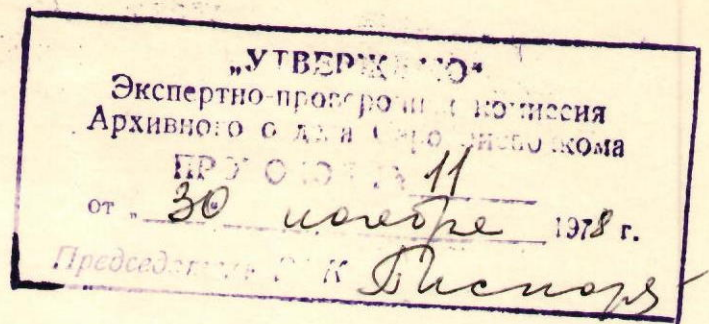 „УТВЕРЖДЕНО"
Экспертно-проверочная комиссия
Архивного отдела
ПРОТОКОЛ № 11
от „30" ноября 1978 г.
Председатель ЭПК